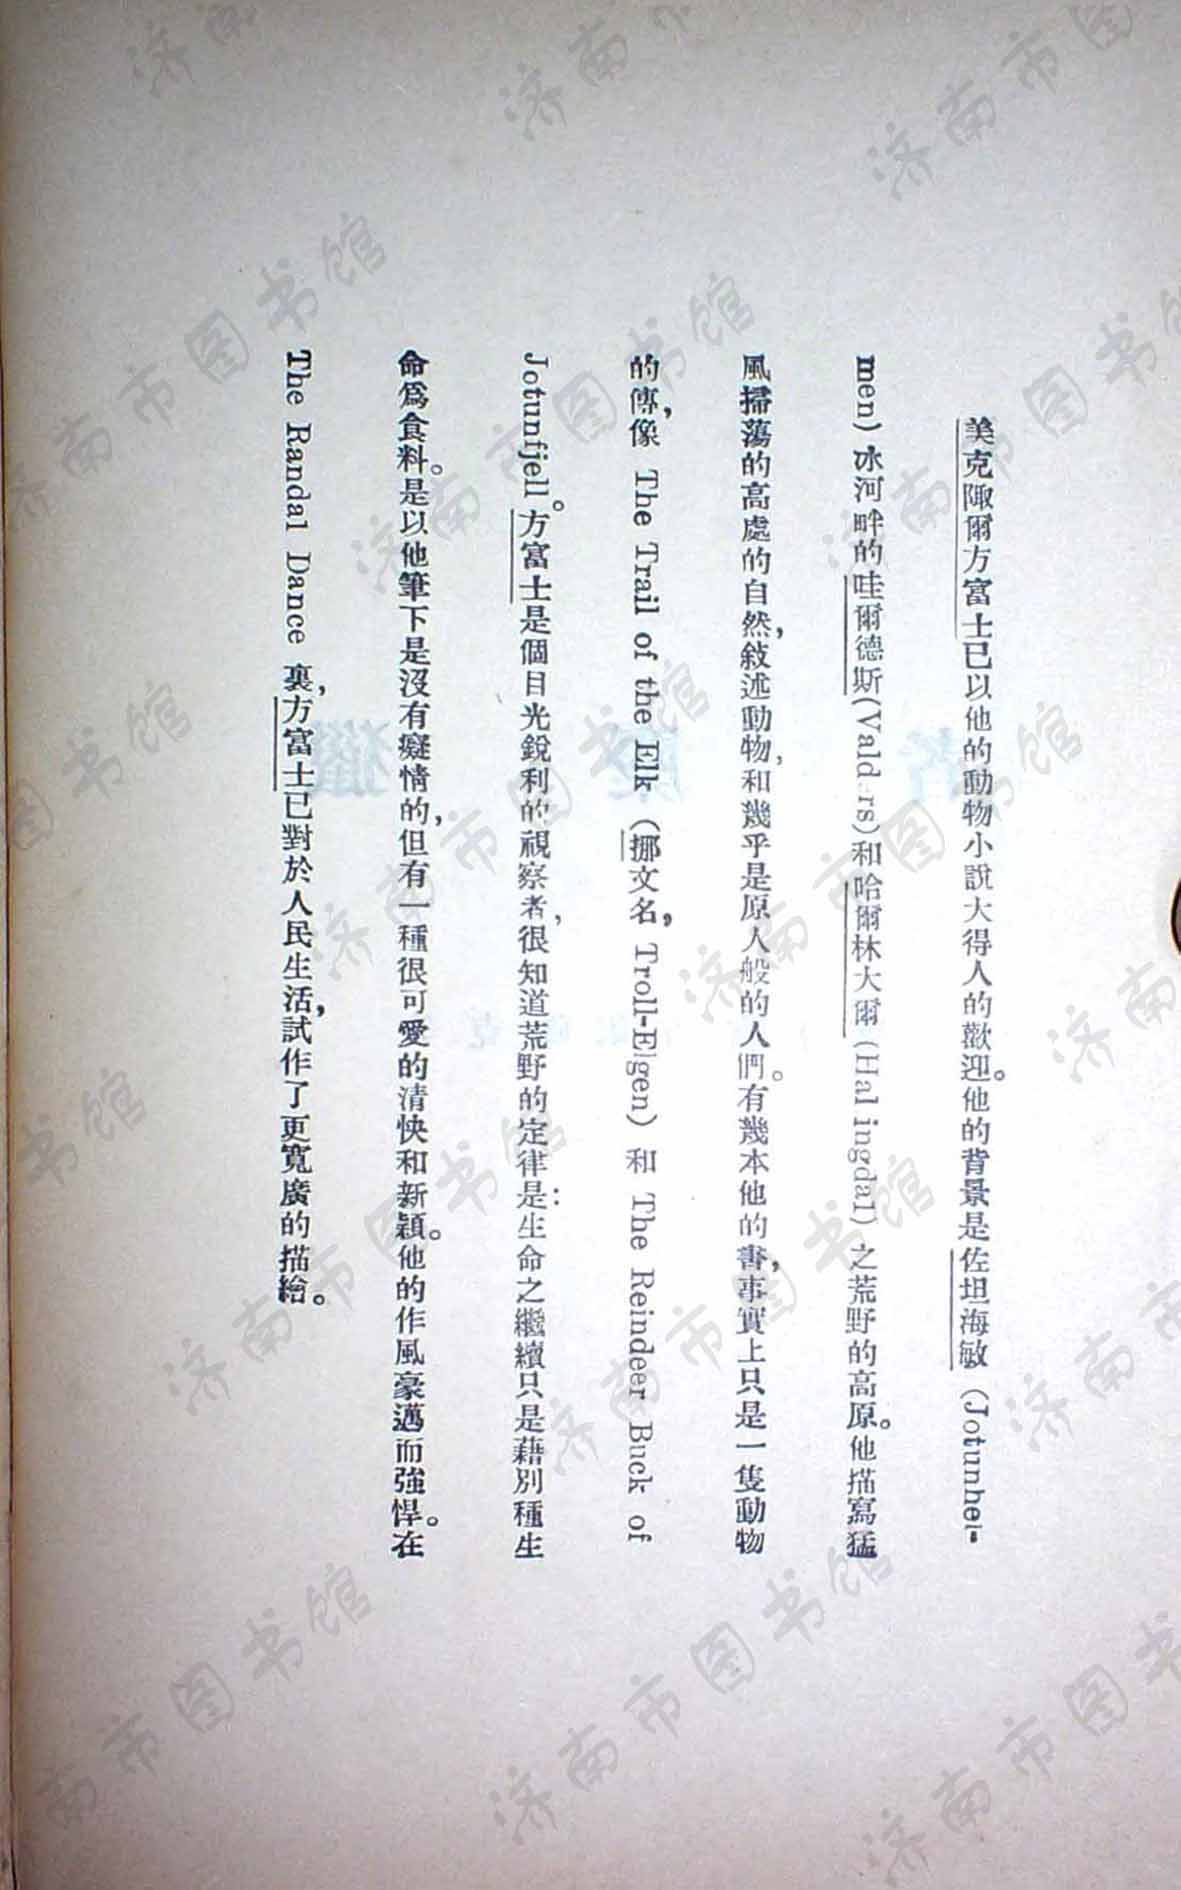 美克陬爾方富士已以他的動物小說大得人的歡迎。他的背景是佐坦海敏（Jotunhei-
men）冰河畔的哇爾德斯(Valders)和哈爾林大爾(Hallingdal)之荒野的高原。他描寫猛
風掃蕩的高處的自然，敍述動物，和幾乎是原人般的人們。有幾本他的書，事實上只是一隻動物
的傳，像 The Trail of the Elk （挪文名，Troll-Elgen）和 The Reindeer Buck of
Jotunfjell。方富士是個目光銳利的視察者，很知道荒野的定律：是生命之繼續只是藉別種生
命爲食料。是以他筆下是沒有癡情的，但有一種很可愛的清快和新穎。他的作風豪邁而強悍。在
The Randal Dance 裏，方富士已對於人民生活，試作了更寬廣的描繪。
济南市图书馆